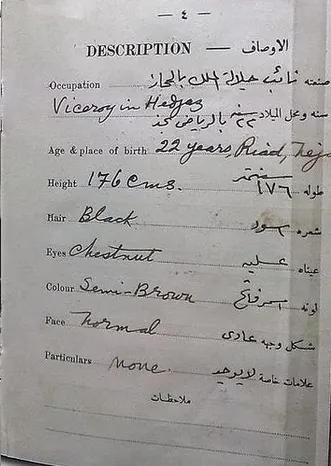 — ٤ —
DESCRIPTION — الاوصاف
Occupation نائب جلالة الملك بالحجاز صنعته
Viceroy in Hedjaz سنه ومحل الميلاد ٢٢ سنه بالرياض نجد
Age & place of birth 22 years, Riad, Nejd
Height 176 cms. ١٧٦ سنتمتر طوله
Hair Black اسود شعره
Eyes Chestnut عسليه عيناه
Colour Semi-Brown اسمر فاتح لونه
Face normal عادى شكل وجهه
Particulars none. لا يوجد علامات خاصة
ملاحظات